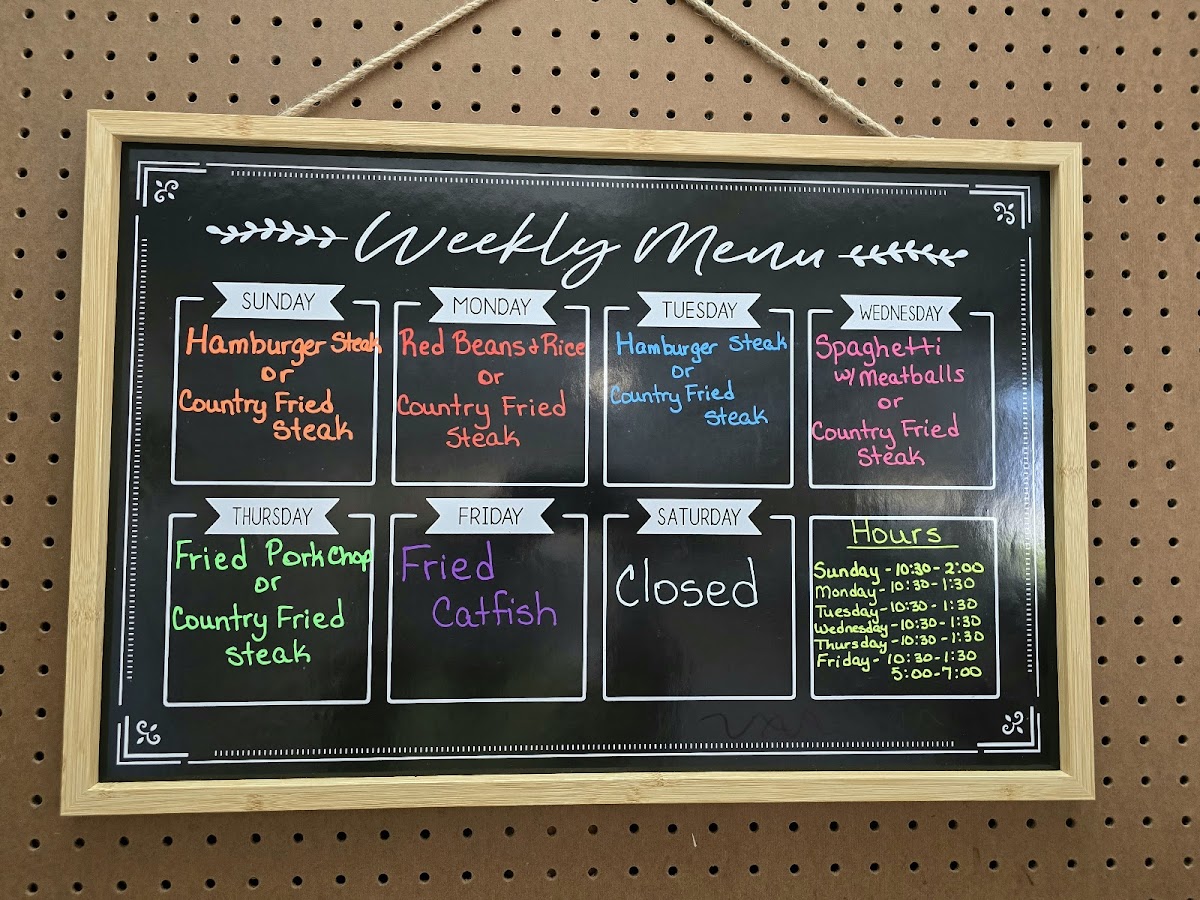 Weekly Menu
SUNDAY
Hamburger Steak
or
Country Fried
Steak
MONDAY
Red Beans & Rice
or
Country Fried
Steak
TUESDAY
Hamburger Steak
or
Country Fried
Steak
WEDNESDAY
Spaghetti
w/ Meatballs
or
Country Fried
Steak
THURSDAY
Fried Pork Chop
or
Country Fried
Steak
FRIDAY
Fried
Catfish
SATURDAY
Closed
Hours
Sunday - 10:30 - 2:00
Monday - 10:30 - 1:30
Tuesday - 10:30 - 1:30
Wednesday - 10:30 - 1:30
Thursday - 10:30 - 1:30
Friday - 10:30 - 1:30
5:00 - 7:00